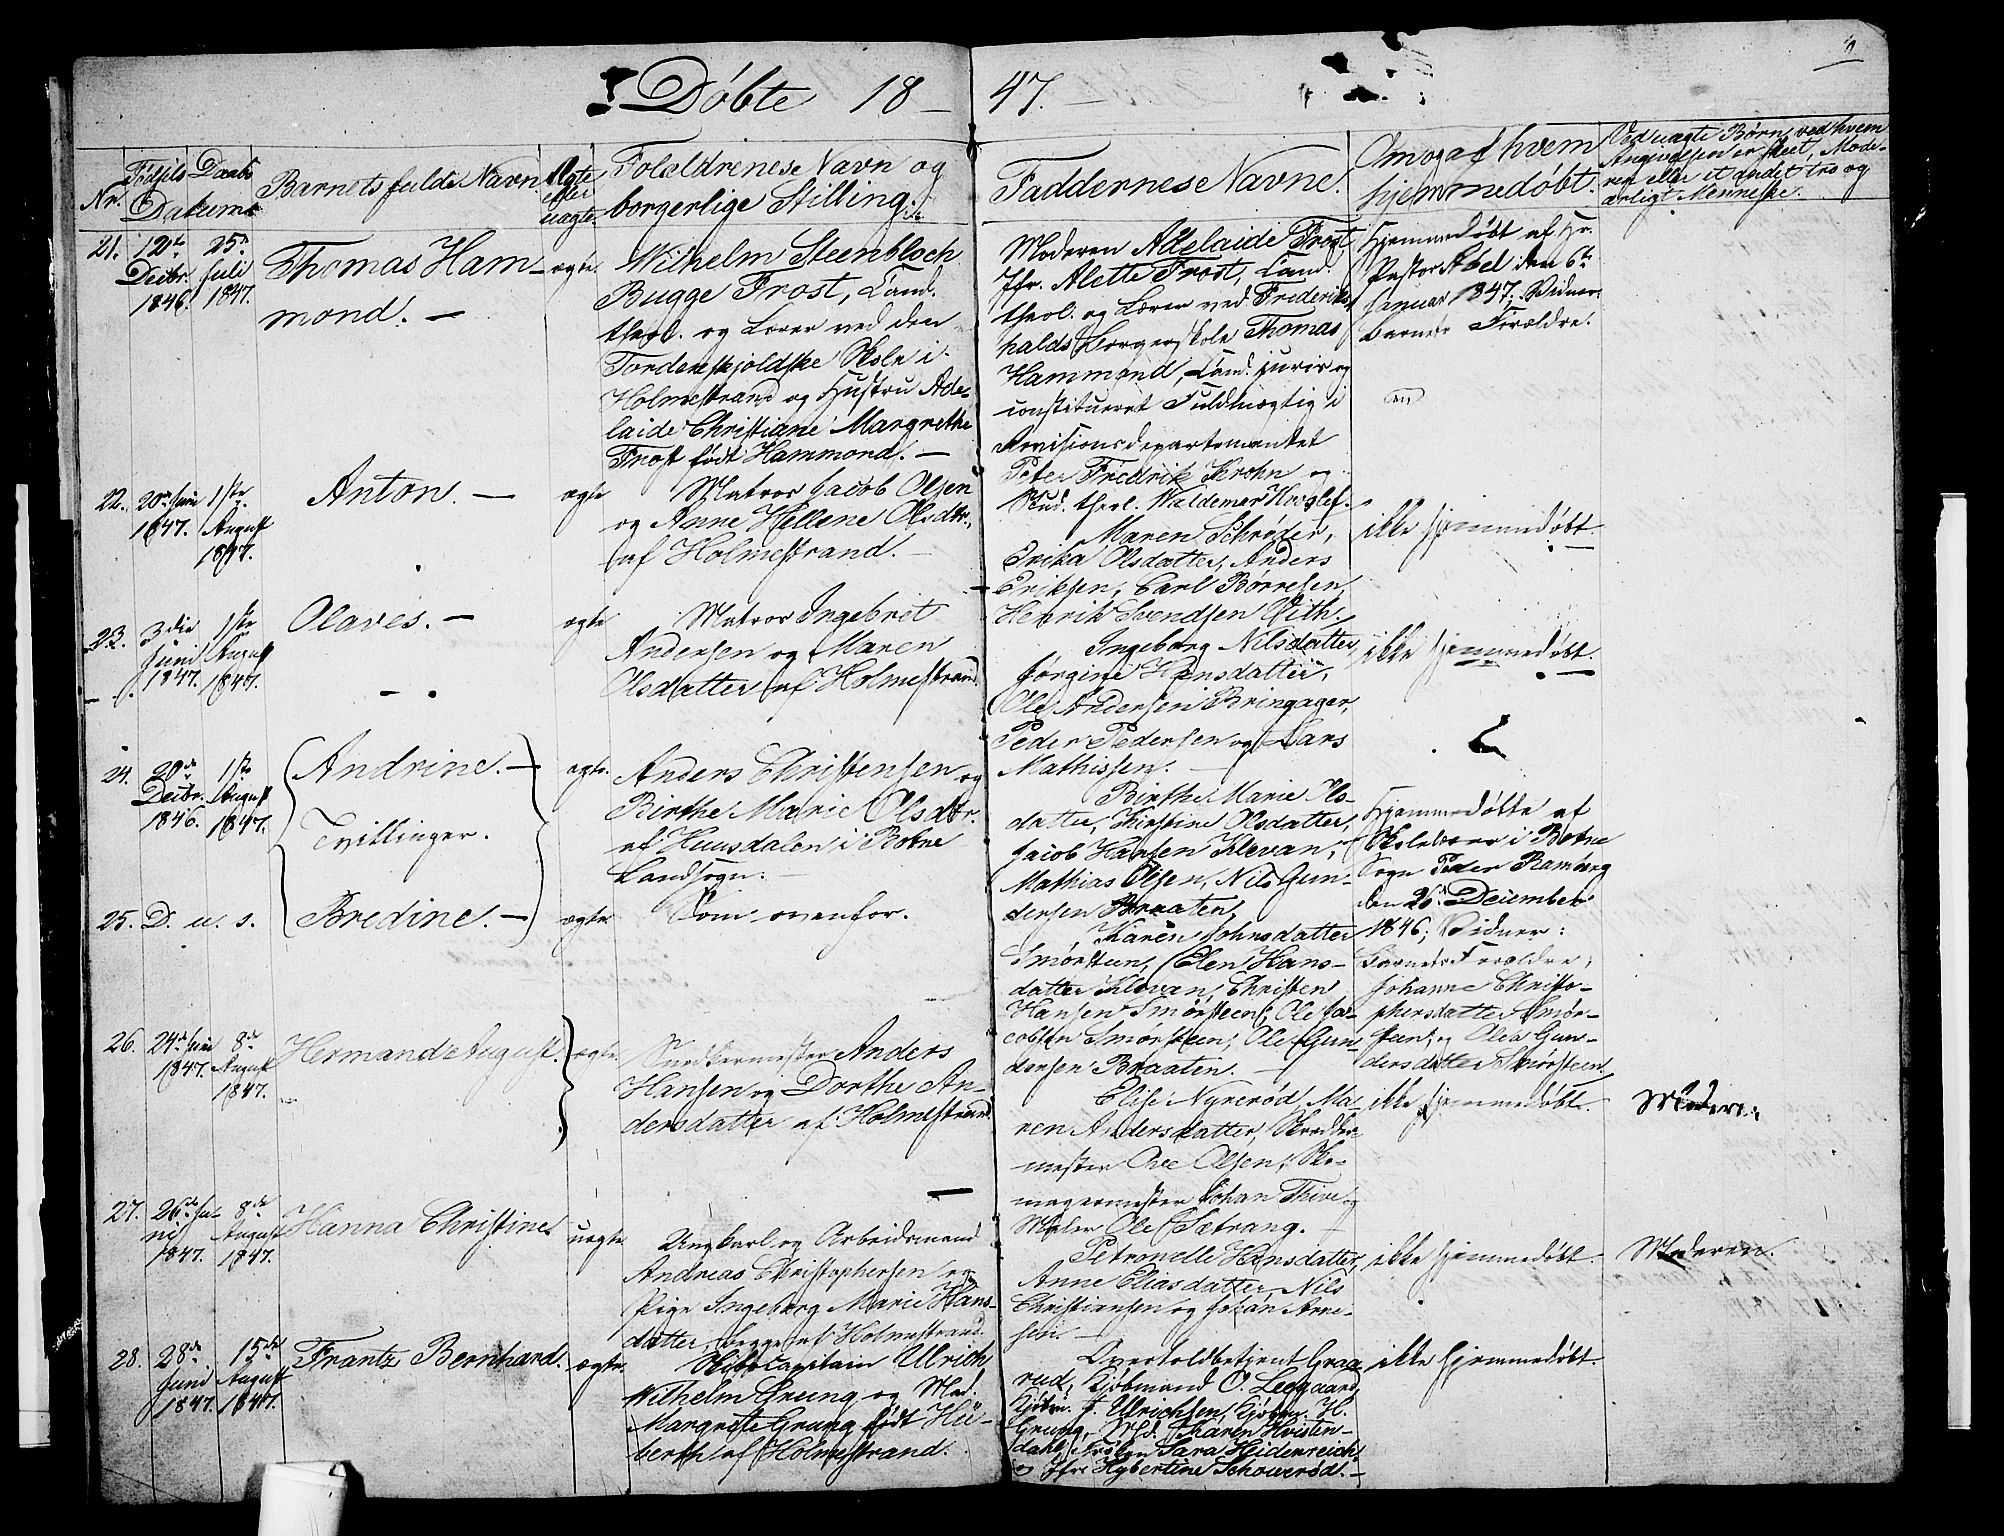 Døbte 18
47.
Nr.
Fødsels Daabs
Datum
Barnets fulde Navn
Ægte
eller
uægte.
Forældrenes Navn og
borgerlige Stilling.
Faddernes Navne.
Om og af hvem
hjemmedøbt.
Ved uægte Børn, ved hvem
Angivelsen er skeet, Mode-
ren eller et andet tro og
ærligt Menneske.
21.
12te
Decbr.
1846.
25de
Juli
1847.
Thomas Ham-
mond. —
ægte.
Wilhelm Steenbloch
Bugge Frost, Cand.
theol. og Lærer ved den
Tordenskjoldske Skole i
Holmestrand og Hustru Ade-
laide Christiane Margrethe
Frost født Hammond. —
Moderen Adelaide Frost
Jfr. Alette Frost, Cand.
theol. og Lærer ved Frederiks-
halds Borgerskole Thomas
Hammond, Cand. juris og
constitueret Fuldmægtig i
Revisionsdepartementet
Peter Fredrik Krohn og
Stud. theol. Waldemar
Hjemmedøbt af Hr.
Pastor Abel den 6te
Januar 1847. Vidner:
Barnets Forældre.
22.
20de Juni
1847.
1ste
August
1847.
Anton. —
ægte
Matros Jacob Olsen
og Anne Hellene Olsdtr.
af Holmestrand. —
Maren Schrøder,
Erika Olsdatter, Anders
Eriksen, Carl Børresen,
Henrik Svendsen Vith.
ikke hjemmedøbt.
23.
3die
Juni
1847.
1ste
August
1847.
Olaves. —
ægte
Matros Ingebret
Andersen og Maren
Olsdatter af Holmestrand.
Ingeborg Nilsdatter,
Jørgine Hansdatter,
Ole Andersen Bringager,
Peder Pedersen og Lars
Mathissen. —
ikke hjemmedøbt.
24.
20de
Decbr.
1846.
1ste
August
1847.
Andrine. —
Tvillinger.
ægte.
Anders Christensen og
Birthe Marie Olsdtr.
af Huusdalen i Botne
Landsogn. —
Birthe Marie Ols-
datter, Kirstine Olsdatter,
Jacob Hansen Klevan,
Mathias Olsen, Nils Gun-
dersen Braaten,
Hjemmedøbte af
Skolelærer i Botne
Sogn Peder Ramberg
den 26. December
1846; Vidner:
Barnets Forældre,
Johanne Christo-
phersdatter Smør-
steen, og Olea Gun-
dersdatter Smørsteen.
25.
D. u. s.
Bredine. —
ægte
Som ovenfor.
Karen Johnsdatter
Smørsteen, Elen Hans-
datter Klevan, Christen
Hansen Smørsteen, Ole Ja-
cobsen Smørsteen, Ole Gun-
dersen Braaten. —
26.
24de Juni
1847.
8de
August
1847.
Hermand August.
ægte.
Snedkermester Anders
Hansen og Dorthe An-
dersdatter af Holmestrand.
Elise Nyrerød, Ma-
ren Andersdatter, Skredder-
mester Ove Olsen, Sko-
magermester Johan Thive og
Maler Ole Sætrang. —
ikke hjemmedøbt.
Moderen.
27.
26de Ju-
ni
1847.
8de
August
1847.
Hanna Christine
uægte.
Ungkarl og Arbeidsmand
Andreas Christophersen og
Pige Ingeborg Marie Hans-
datter, begge af Holmestrand.
Petronelle Hansdatter,
Anne Eliasdatter, Nils
Christiansen og Johan Arne-
sen. —
ikke hjemmedøbt.
Moderen.
28.
28de
Juni
1847.
15de
August
1847.
Frantz Bernhard.
ægte.
Skibscapitain Ulrich
Wilhelm Grung og Mad.
Margrete Grung født Hü-
berth af Holmestrand.
Overtoldbetjent Graa-
rud, Kjøbmand O. Leegaard,
Kjøbm. F. Ulrichsen, Kjøbm. H.
Grung, Md. Karen Hvisten-
dahl, Frøken Sara Heidenreich
og Jfr. Hybertine Schowerød. —
ikke hjemmedøbt.